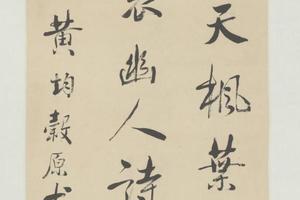 天楓葉
幽人詩
黄均穀原